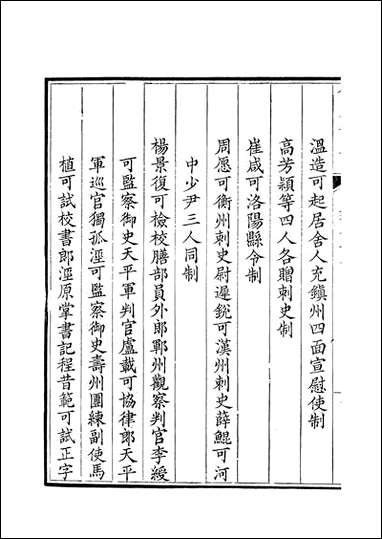 溫造可起居舍人充鎭州四面宣慰使制
高芳穎等四人各贈刺史制
崔咸可洛陽縣令制
周愿可衡州刺史尉遲銳可漢州刺史薛鯤可河
中少尹三人同制
楊景復可檢校膳部員外郎鄆州觀察判官李綬
可監察御史天平軍判官盧載可協律郎天平
軍巡官獨孤涇可監察御史壽州團練副使馬
植可試校書郎涇原掌書記程昔範可試正字